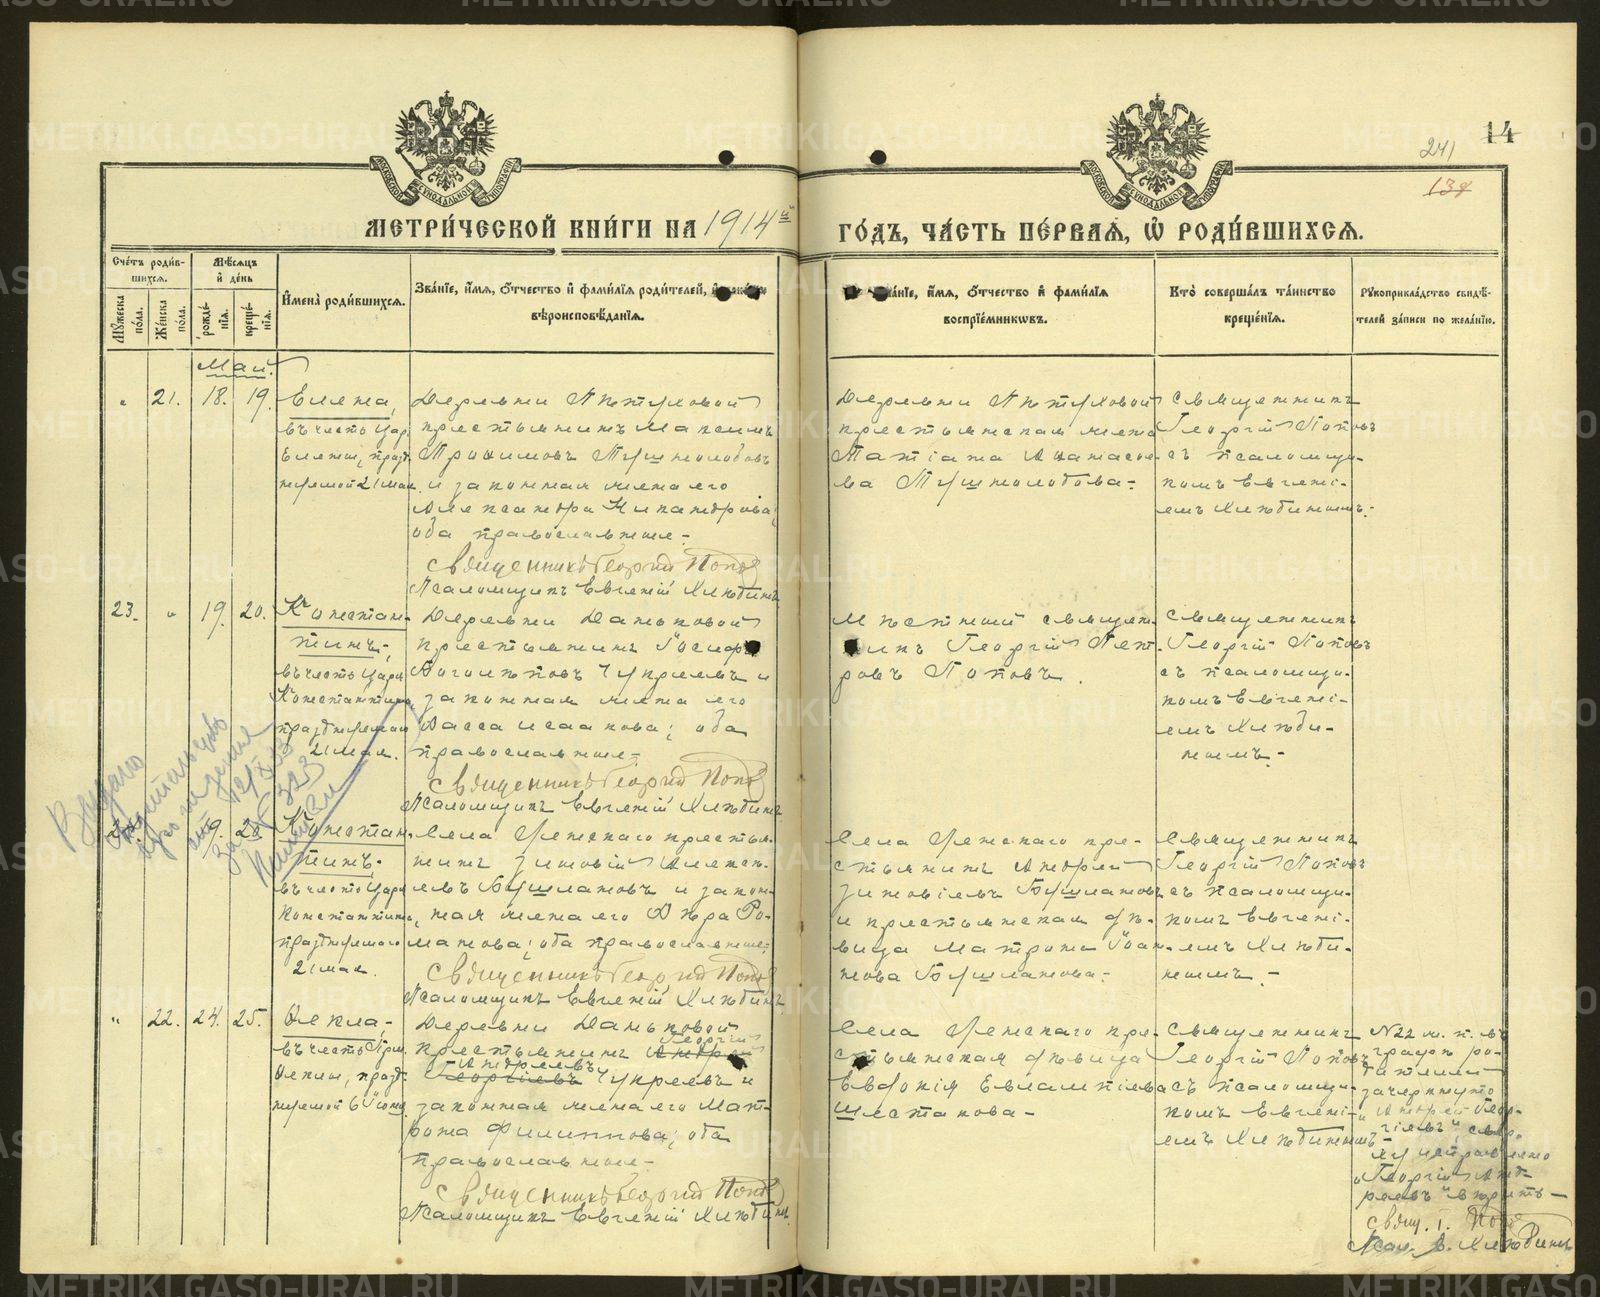 14
241
138
МОСКОВСКОЙ СѴНОДАЛЬНОЙ ТИПОГРАФІИ
МОСКОВСКОЙ СѴНОДАЛЬНОЙ ТИПОГРАФІИ
МЕТРИ́ЧЕСКОЙ КНИ́ГИ НА 1914й
ГО́ДЪ, ЧА́СТЬ ПЕ́РВАѦ, Ѿ РОДИ́ВШИХСѦ.
Сче́тъ роди́в-
шихсѧ.
Мꙋ́жеска по́ла.
Же́нска по́ла.
Мѣ́сѧцъ
и де́нь
рожде́-
нїѧ.
креще́-
нїѧ.
Имена̀ роди́вшихсѧ.
Зва́нїе, и́мѧ, о́тчество и фами́лїѧ роди́телей, и
вѣроисповѣ́данїѧ.
Зва́нїе, и́мѧ, о́тчество и фами́лїѧ
воспрїе́мникѡвъ.
Кто̀ соверша́лъ та́инство
креще́нїѧ.
Рꙋкоприкла́дство свидѣ́-
телей за́писи по жела́нїю.
Май.
" 21. 18. 19.
Елена,
въ честь Цар.
Елены, празд-
нуемой 21 мая.
Деревни Пѣтуховой
крестьянинъ Максимъ
Трофимовъ Пушнолобовъ
и законная жена его
Александра Никандрова;
оба православные.-
Священникъ Георгій Поповъ
Псаломщикъ Евгеній Хлѣбинъ
Деревни Пѣтуховой
крестьянская жена
Татіана Аѳанасье-
ва Пушнолобова.-
Священникъ
Георгій Поповъ
съ псаломщи-
комъ Евгені-
емъ Хлѣбинымъ.-
23. " 19. 20.
Констан-
тинъ,
въ честь Царя
Константина,
празднуемаго
21 мая.
Деревни Даньковой
крестьянинъ Іосифъ
Боголѣповъ Чукреевъ и
законная жена его
Васса Исаакова; оба
православные.-
Священникъ Георгій Поповъ
Псаломщикъ Евгеній Хлѣбинъ
Мѣстный священ-
никъ Георгій Пет-
ровъ Поповъ.
Священникъ
Георгій Поповъ
съ псаломщи-
комъ Евгені-
емъ Хлѣби-
нымъ.-
Выдано
свидѣтельство
о рожденіи
за № 323
24. 19. 20.
Констан-
тинъ.
въ честь Царя
Константина,
празднуемаго
21 мая.
Села Ленскаго крестья-
нинъ Зиновій Алексѣ-
евъ Бушлановъ и закон-
ная жена его Вѣра Ро-
манова; оба православные.-
Священникъ Георгій Поповъ
Псаломщикъ Евгеній Хлѣбинъ
Села Ленскаго кре-
стьянинъ Андрей
Зиновіевъ Бушлановъ
и крестьянская дѣ-
вица Матрона Іоан-
нова Бушланова.-
Священникъ
Георгій Поповъ
съ псаломщи-
комъ Евгені-
емъ Хлѣби-
нымъ.-
" 22. 24. 25.
Ѳекла,
въ честь Прм.
Ѳеклы, празд-
нуемой 6 Іюня.
Деревни Даньковой
Георгій
крестьянинъ Андрей
Андреевъ
Георгіевъ Чукреевъ и
законная жена его Мат-
рона Филиппова; оба
православные.-
Священникъ Георгій Поповъ
Псаломщикъ Евгеній Хлѣбинъ
Села Ленскаго кре-
стьянская дѣвица
Евдокія Евлампіева
Шестакова.-
Священникъ
Георгій Поповъ
съ псаломщи-
комъ Евгені-
емъ Хлѣбинымъ.-
№ 22 ж. п. въ
графѣ ро-
дителей
зачеркнуто
"Андрей Геор-
гіевъ", свер-
ху исправлено
"Георгій Анд-
реевъ" вѣрить.-
Свящ. Г. Поповъ
Псал. Е. Хлѣбинъ